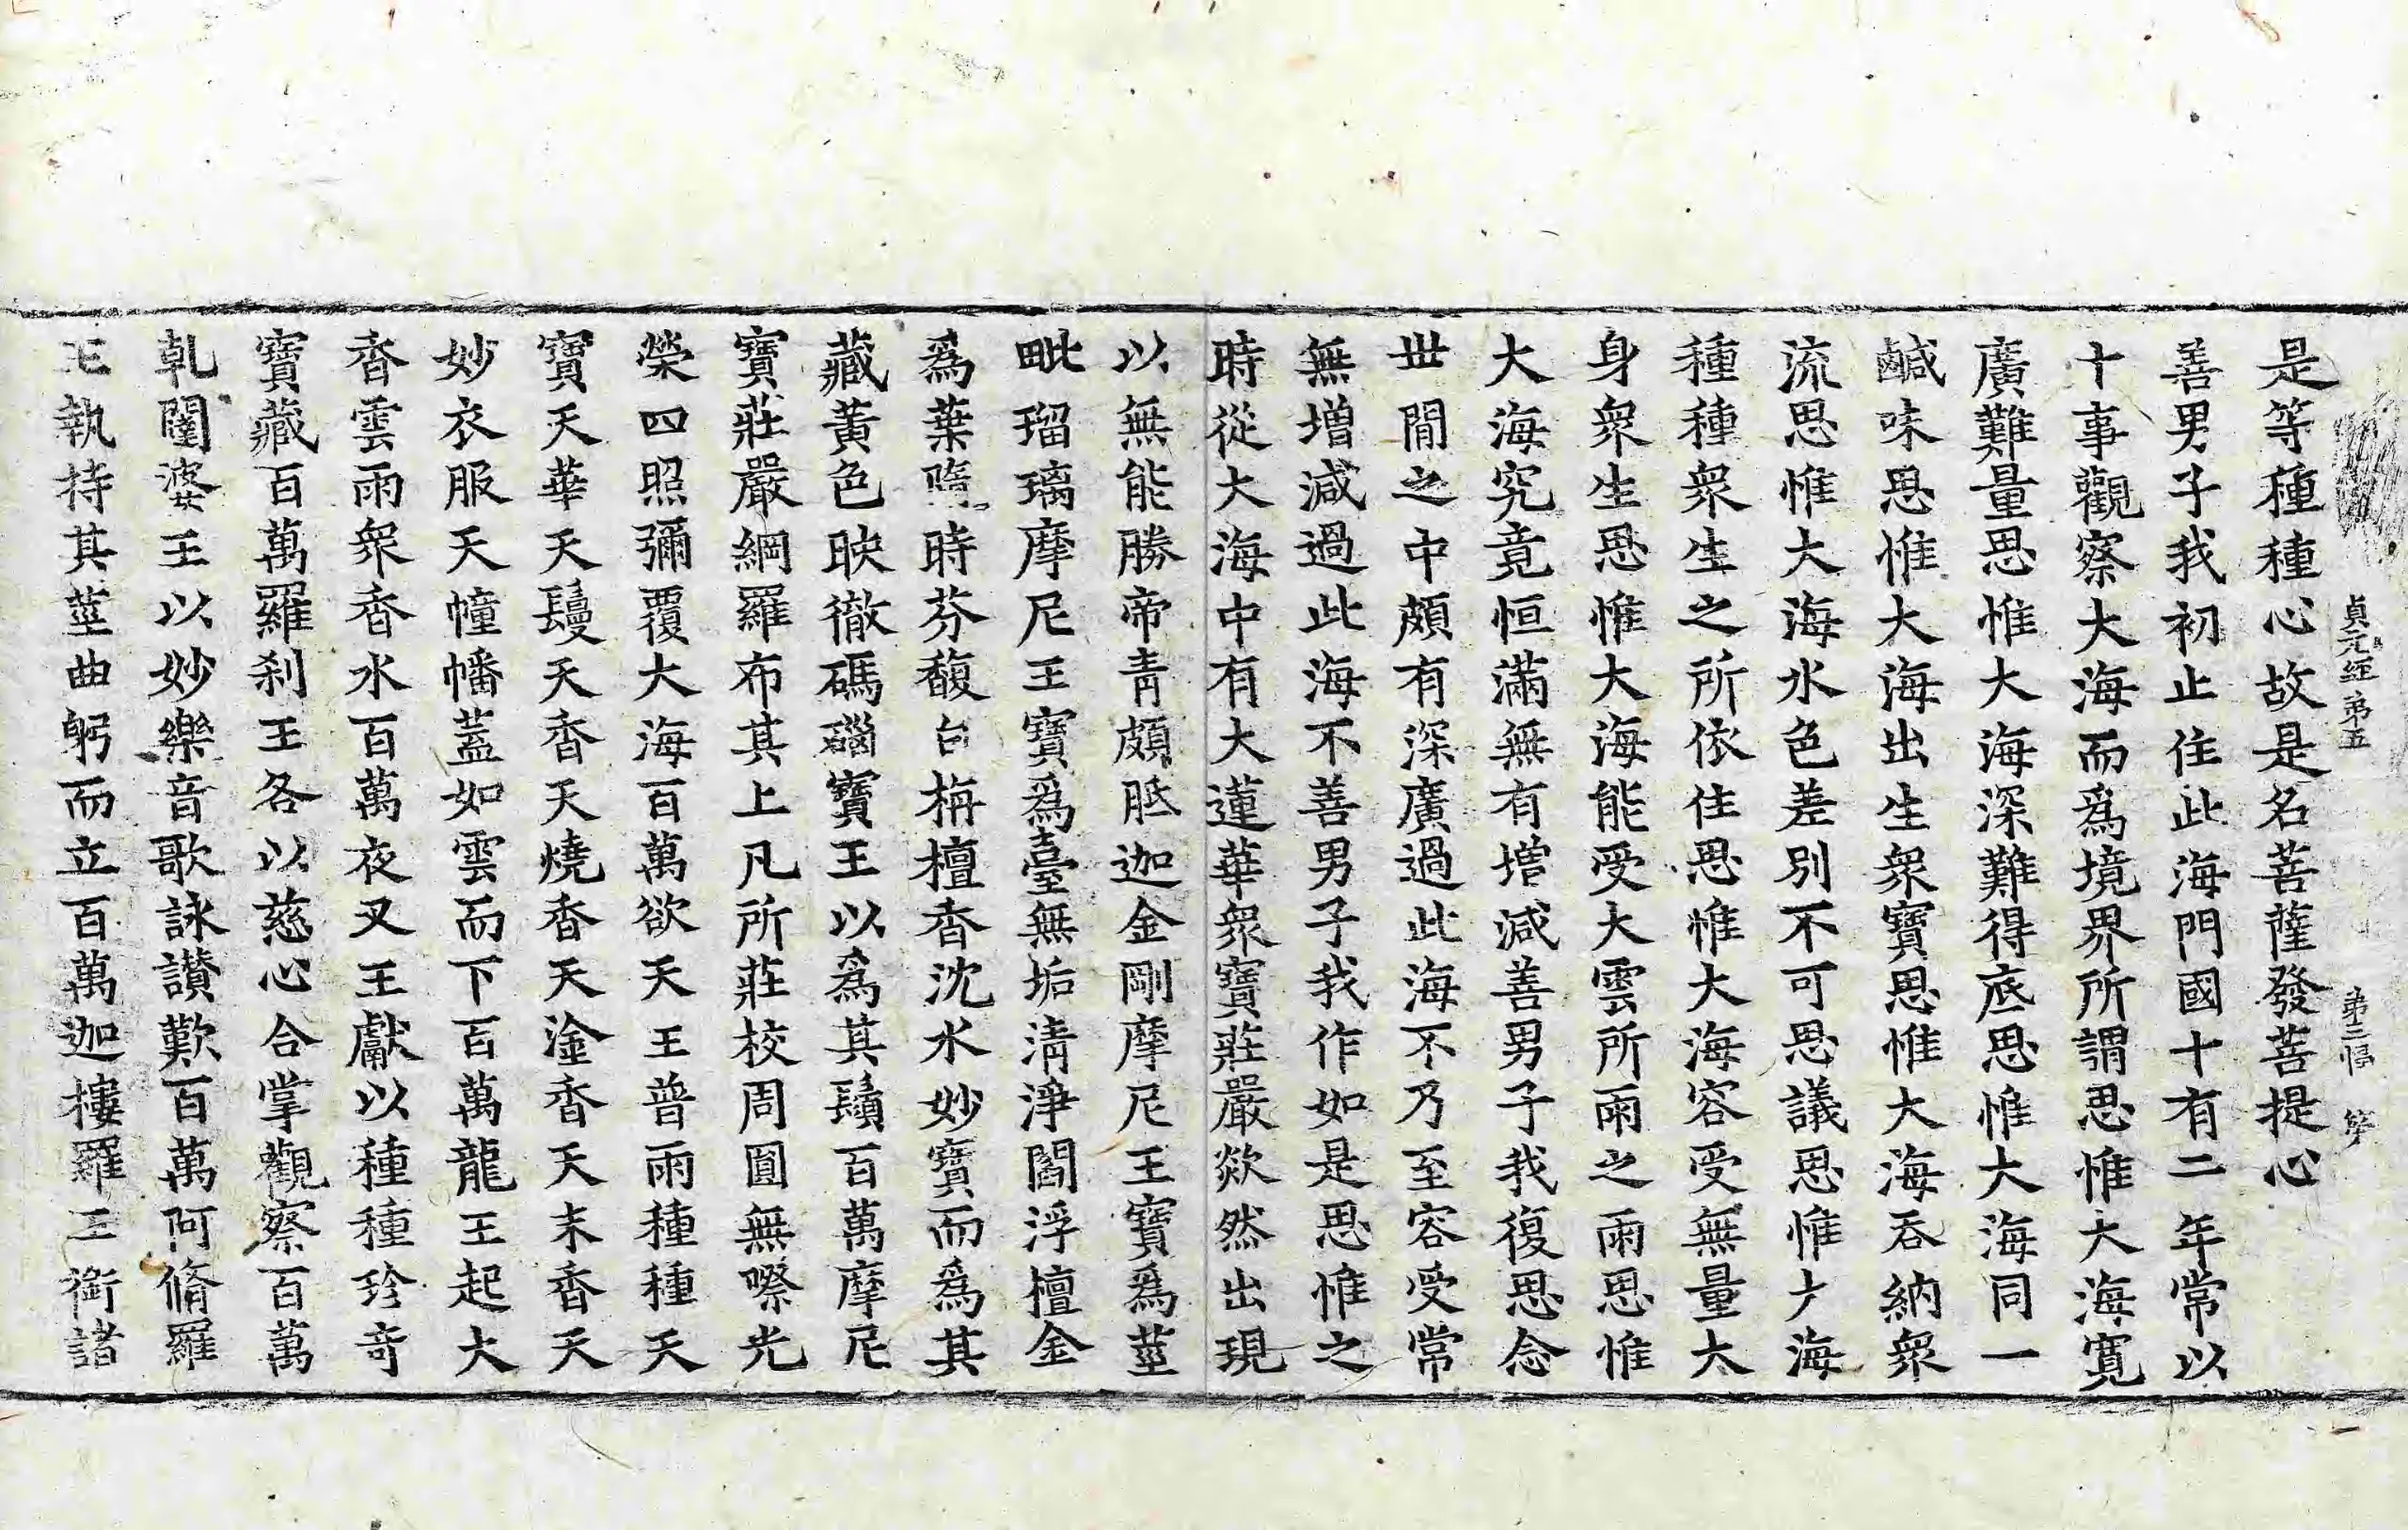 貞元經第五 第三幅
是等種種心故是名菩薩發菩提心
善男子我初止住此海門國十有二年常以
十事觀察大海而爲境界所謂思惟大海寬
廣難量思惟大海深難得底思惟大海同一
鹹味思惟大海出生衆寶思惟大海吞納衆
流思惟大海水色差別不可思議思惟大海
種種衆生之所依住思惟大海容受無量大
身衆生思惟大海能受大雲所雨之雨思惟
大海究竟恒滿無有增減善男子我復思念
世間之中頗有深廣過此海不乃至容受常
無增減過此海不善男子我作如是思惟之
時從大海中有大蓮華衆寶莊嚴欻然出現
以無能勝帝青頗胝迦金剛摩尼王寶爲莖
毗瑠璃摩尼王寶爲臺無垢清淨閻浮檀金
爲葉隨時芬馥白栴檀香沈水妙寶而爲其
藏黃色映徹碼碯寶王以爲其鬚百萬摩尼
寶莊嚴網羅布其上凡所莊校周圓無際光
榮四照彌覆大海百萬欲天王普雨種種天
寶天華天鬘天香天燒香天塗香天末香天
妙衣服天幢幡蓋如雲而下百萬龍王起大
香雲雨衆香水百萬夜叉王獻以種種珍奇
寶藏百萬羅刹王各以慈心合掌觀察百萬
乹闥婆王以妙樂音歌詠讃歎百萬阿脩羅
王執持其莖曲躬而立百萬迦樓羅王銜諸